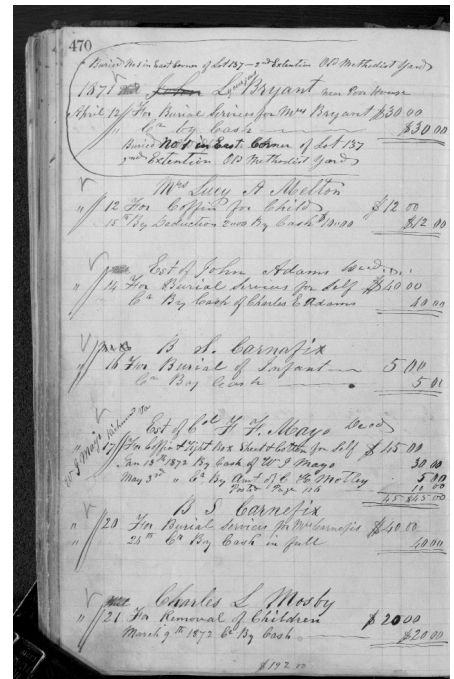 470
Buried No 1 in East Corner of Lot 137 - 2nd Extention Old Methodist Yard
1871 John L Bryant near Poor House
April 12 For Burial Services for Mrs Bryant $30 00
" Cr by Cash $30 00
Buried No 1 in East Corner of Lot 137
2nd Extention Old Methodist Yard
Mrs Lucy A Melton
" 12 For Coffin for Child $12 00
15 By Deduction 2 00 By Cash $10 00 $12 00
Est of John Adams
" 14 For Burial Services for Self $40 00
Cr By Cash of Charles E Adams 40 00
B S. Carnefix
" 16 For Burial of Infant 5 00
Cr By Cash 5 00
Est of Col F F. Mayo Decd
W J Mayo Richmond Va
" 17 For Coffin & Tight Box Sheet & Cotton for Self $45 00
Jan 13th 1872 By Cash of W J Mayo 30 00
May 3rd " Cr By Amt of C Motley 5 00
Page 116 10 00
45 $45 00
B S Carnefix
" 20 For Burial Services for Mrs Carnefix $40 00
24th Cr By Cash in full 40 00
Charles L Mosby
" 21 For Removal of Children $20 00
March 9th 1872 Cr By Cash $20 00
$192 00